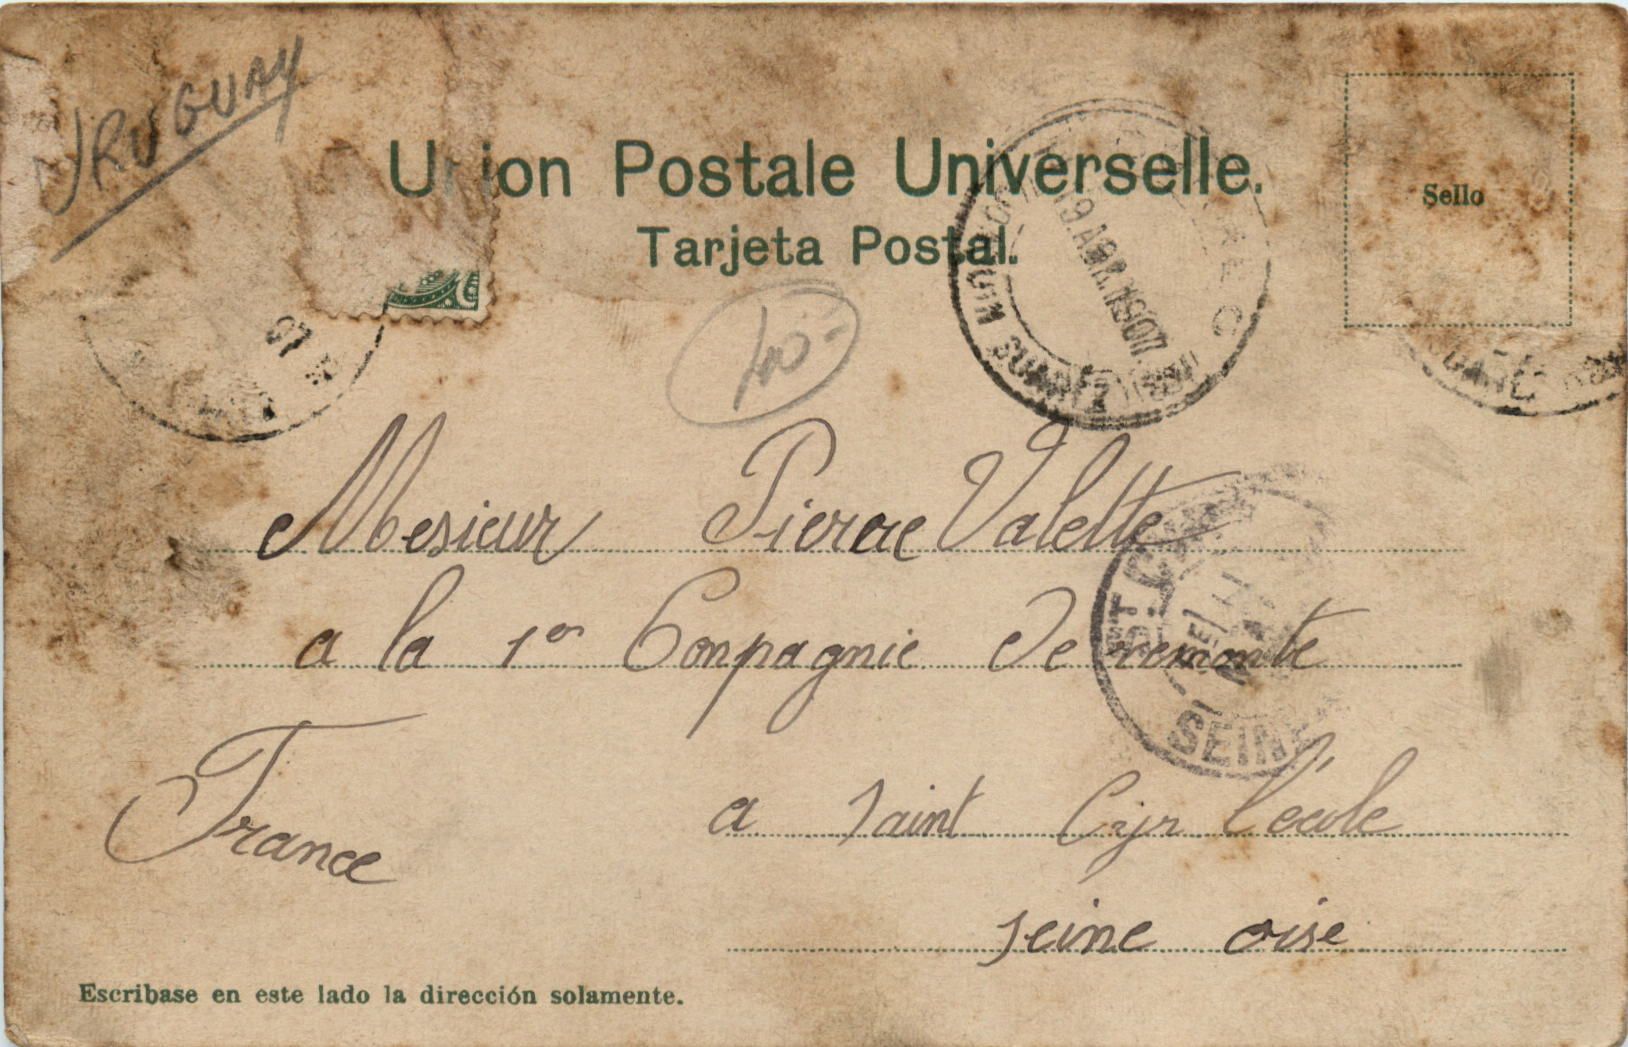 URUGUAY
Union Postale Universelle.
Tarjeta Postal.
Sello
19.ABR.1907
07
SUAREZ
400=
Mesieur Pierre Valette
ST. C
a la 1er Conpagnie de remonte
SEINE
France
a Saint Cyr l'ecole
Seine oise
Escribase en este lado la dirección solamente.